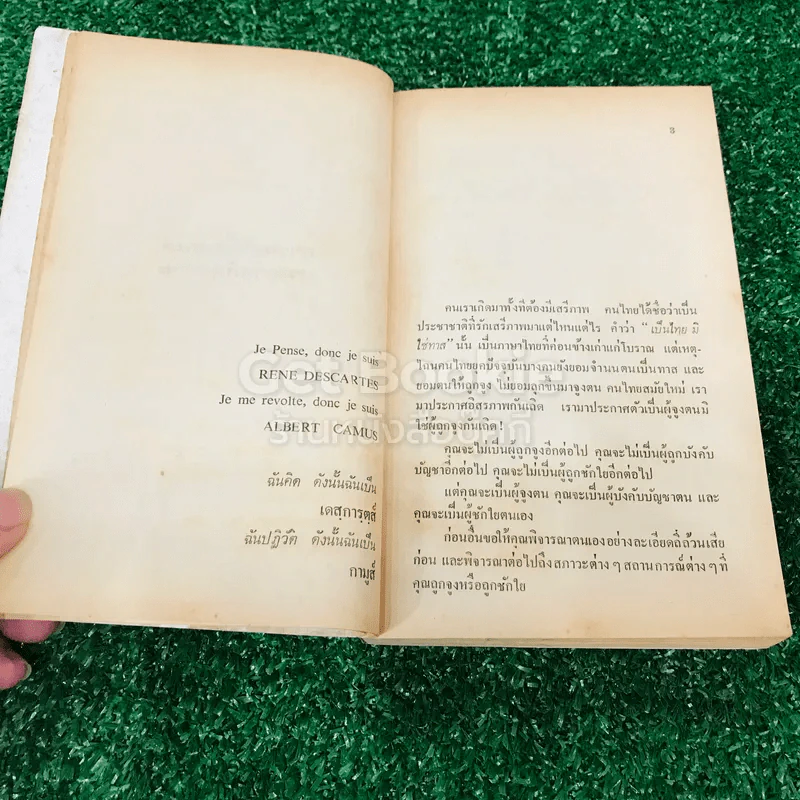 Je Pense, donc je suis
RENE DESCARTES
Je me revolte, donc je suis
ALBERT CAMUS
ฉันคิด ดังนั้นฉันเป็น
เดสการุตส์
ฉันปฏิวัติ ดังนั้นฉันเป็น
กามูส์
3
คนเราเกิดมาทั้งทีต้องมีเสรีภาพ คนไทยได้ชื่อว่าเป็น
ประชาชาติที่รักเสรีภาพมาแต่ไหนแต่ไร คำว่า "เป็นไทย มิ
ใช่ทาส" นั้น เป็นภาษาไทยที่ค่อนข้างเก่าแก่โบราณ แต่เหตุ-
ไฉนคนไทยยุคปัจจุบันบางคนยังยอมจำนนตนเป็นทาส และ
ยอมตนให้ถูกจูง ไม่ยอมลุกขึ้นมาจูงตน คนไทยสมัยใหม่ เรา
มาประกาศอิสรภาพกันเถิด เรามาประกาศตัวเป็นผู้จูงตนมิ
ใช่ผู้ถูกจูงกันเถิด!
คุณจะไม่เป็นผู้ถูกจูงอีกต่อไป คุณจะไม่เป็นผู้ถูกบังคับ
บัญชาอีกต่อไป คุณจะไม่เป็นผู้ถูกชักใยอีกต่อไป
แต่คุณจะเป็นผู้จูงตน คุณจะเป็นผู้บังคับบัญชาตน และ
คุณจะเป็นผู้ชักใยตนเอง
ก่อนอื่นขอให้คุณพิจารณาตนเองอย่างละเอียดถี่ถ้วนเสีย
ก่อน และพิจารณาต่อไปถึงสภาวะต่าง ๆ สถานการณ์ต่าง ๆ ที่
คุณถูกจูงหรือถูกชักใย
Get Bookie
ร้านหนังสือบุ๊คกี้